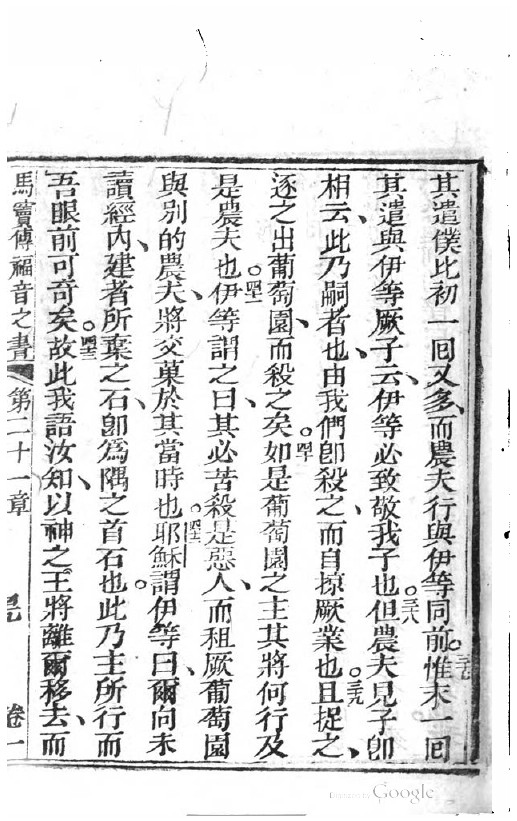 其遣僕比初一囘又多、而農夫行與伊等同前。三七惟末一囘
其遣與伊等厥子、云伊等必致敬我子也。三八但農夫見子卽
相云、此乃嗣者也、由我們卽殺之、而自掠厥業也。三九且捉之、
逐之出葡萄園、而殺之矣。四十如是葡萄園之主其將何行及
是農夫也。四一伊等謂之曰、其必苦殺是惡人、而租厥葡萄園
與別的農夫、將交菓於其當時也。四二耶穌謂伊等曰、爾向未
讀經內、建者所棄之石、卽爲隅之首石也。此乃主所行而
吾眼前可奇矣。四三故此我語汝知、以神之王將離爾移去、而
馬竇傳福音之書 第二十一章 卷一
Digitized by Google